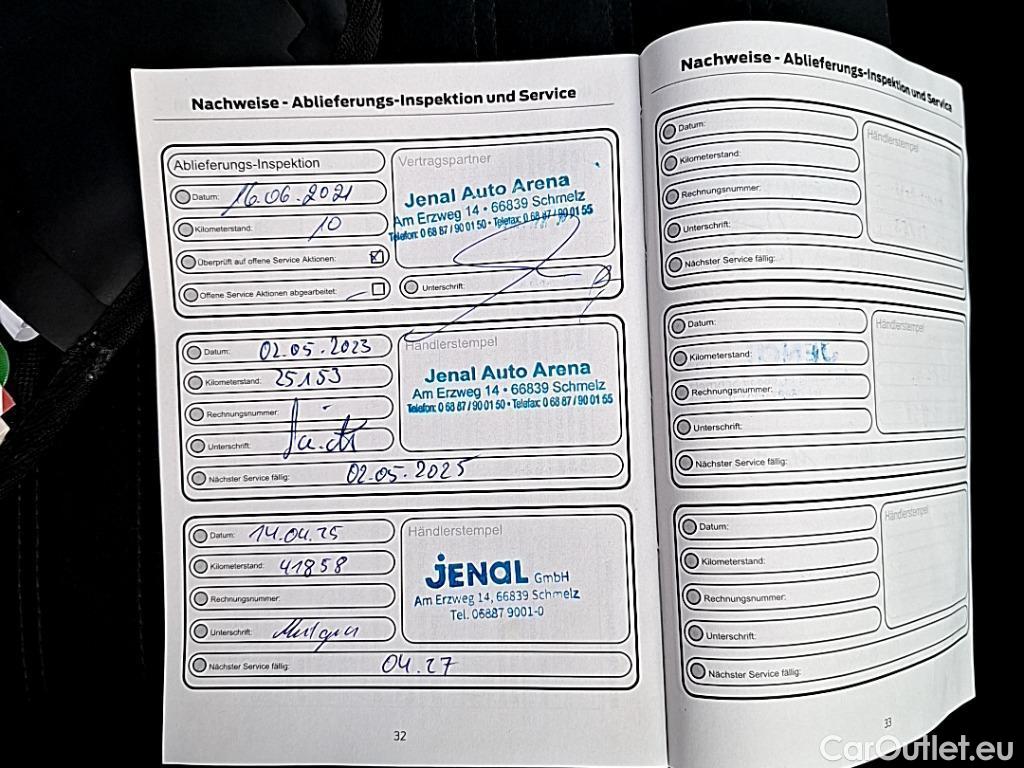 Nachweise - Ablieferungs-Inspektion und Service
Ablieferungs-Inspektion
Datum: 16.06.2021
Kilometerstand: 10
Überprüft auf offene Service Aktionen:
Offene Service Aktionen abgearbeitet:
Vertragspartner
Jenal Auto Arena
Am Erzweg 14 • 66839 Schmelz
Telefon: 0 68 87 / 90 01 50 • Telefax: 0 68 87 / 90 01 55
Unterschrift:
Datum: 02.05.2023
Kilometerstand: 25153
Rechnungsnummer:
Unterschrift:
Nächster Service fällig: 02.05.2025
Händlerstempel
Jenal Auto Arena
Am Erzweg 14 • 66839 Schmelz
Telefon: 0 68 87 / 90 01 50 • Telefax: 0 68 87 / 90 01 55
Datum: 14.04.25
Kilometerstand: 41858
Rechnungsnummer:
Unterschrift:
Nächster Service fällig: 04.27
Händlerstempel
JENAL GmbH
Am Erzweg 14, 66839 Schmelz
Tel. 06887 9001-0
32
Nachweise - Ablieferungs-Inspektion und Service
Datum:
Kilometerstand:
Rechnungsnummer:
Unterschrift:
Nächster Service fällig:
Händlerstempel
Datum:
Kilometerstand:
Rechnungsnummer:
Unterschrift:
Nächster Service fällig:
Händlerstempel
Datum:
Kilometerstand:
Rechnungsnummer:
Unterschrift:
Nächster Service fällig:
Händlerstempel
33
CarOutlet.eu